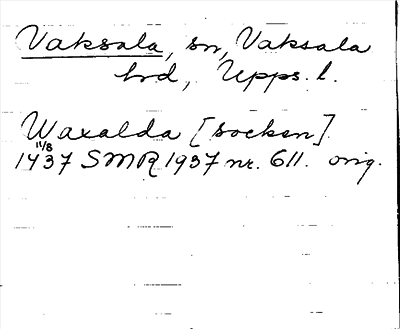 Vaksala, sn, Vaksala
hrd, Upps. l.
Waxalda [socken]
11/8
1437 SMR 1937 nr. 611. orig.